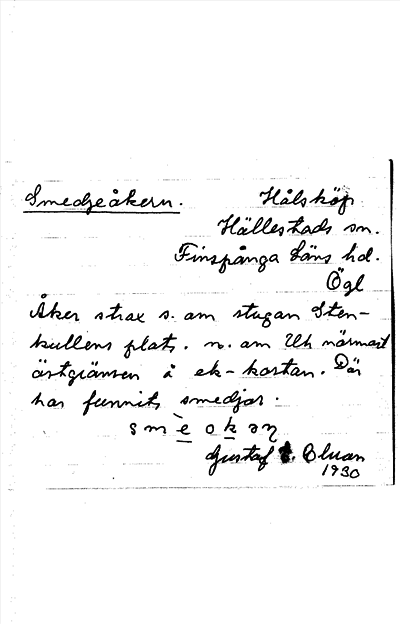 Smedjeåkern. Hålsköp
Hällestads sn.
Finspånga läns hd.
Ögl
Åker strax s. om stugan Sten-
kullens plats. n. om Uh närmast
östgränsen å ek-kartan. Där
har funnits smedjor.
Gustaf
1930